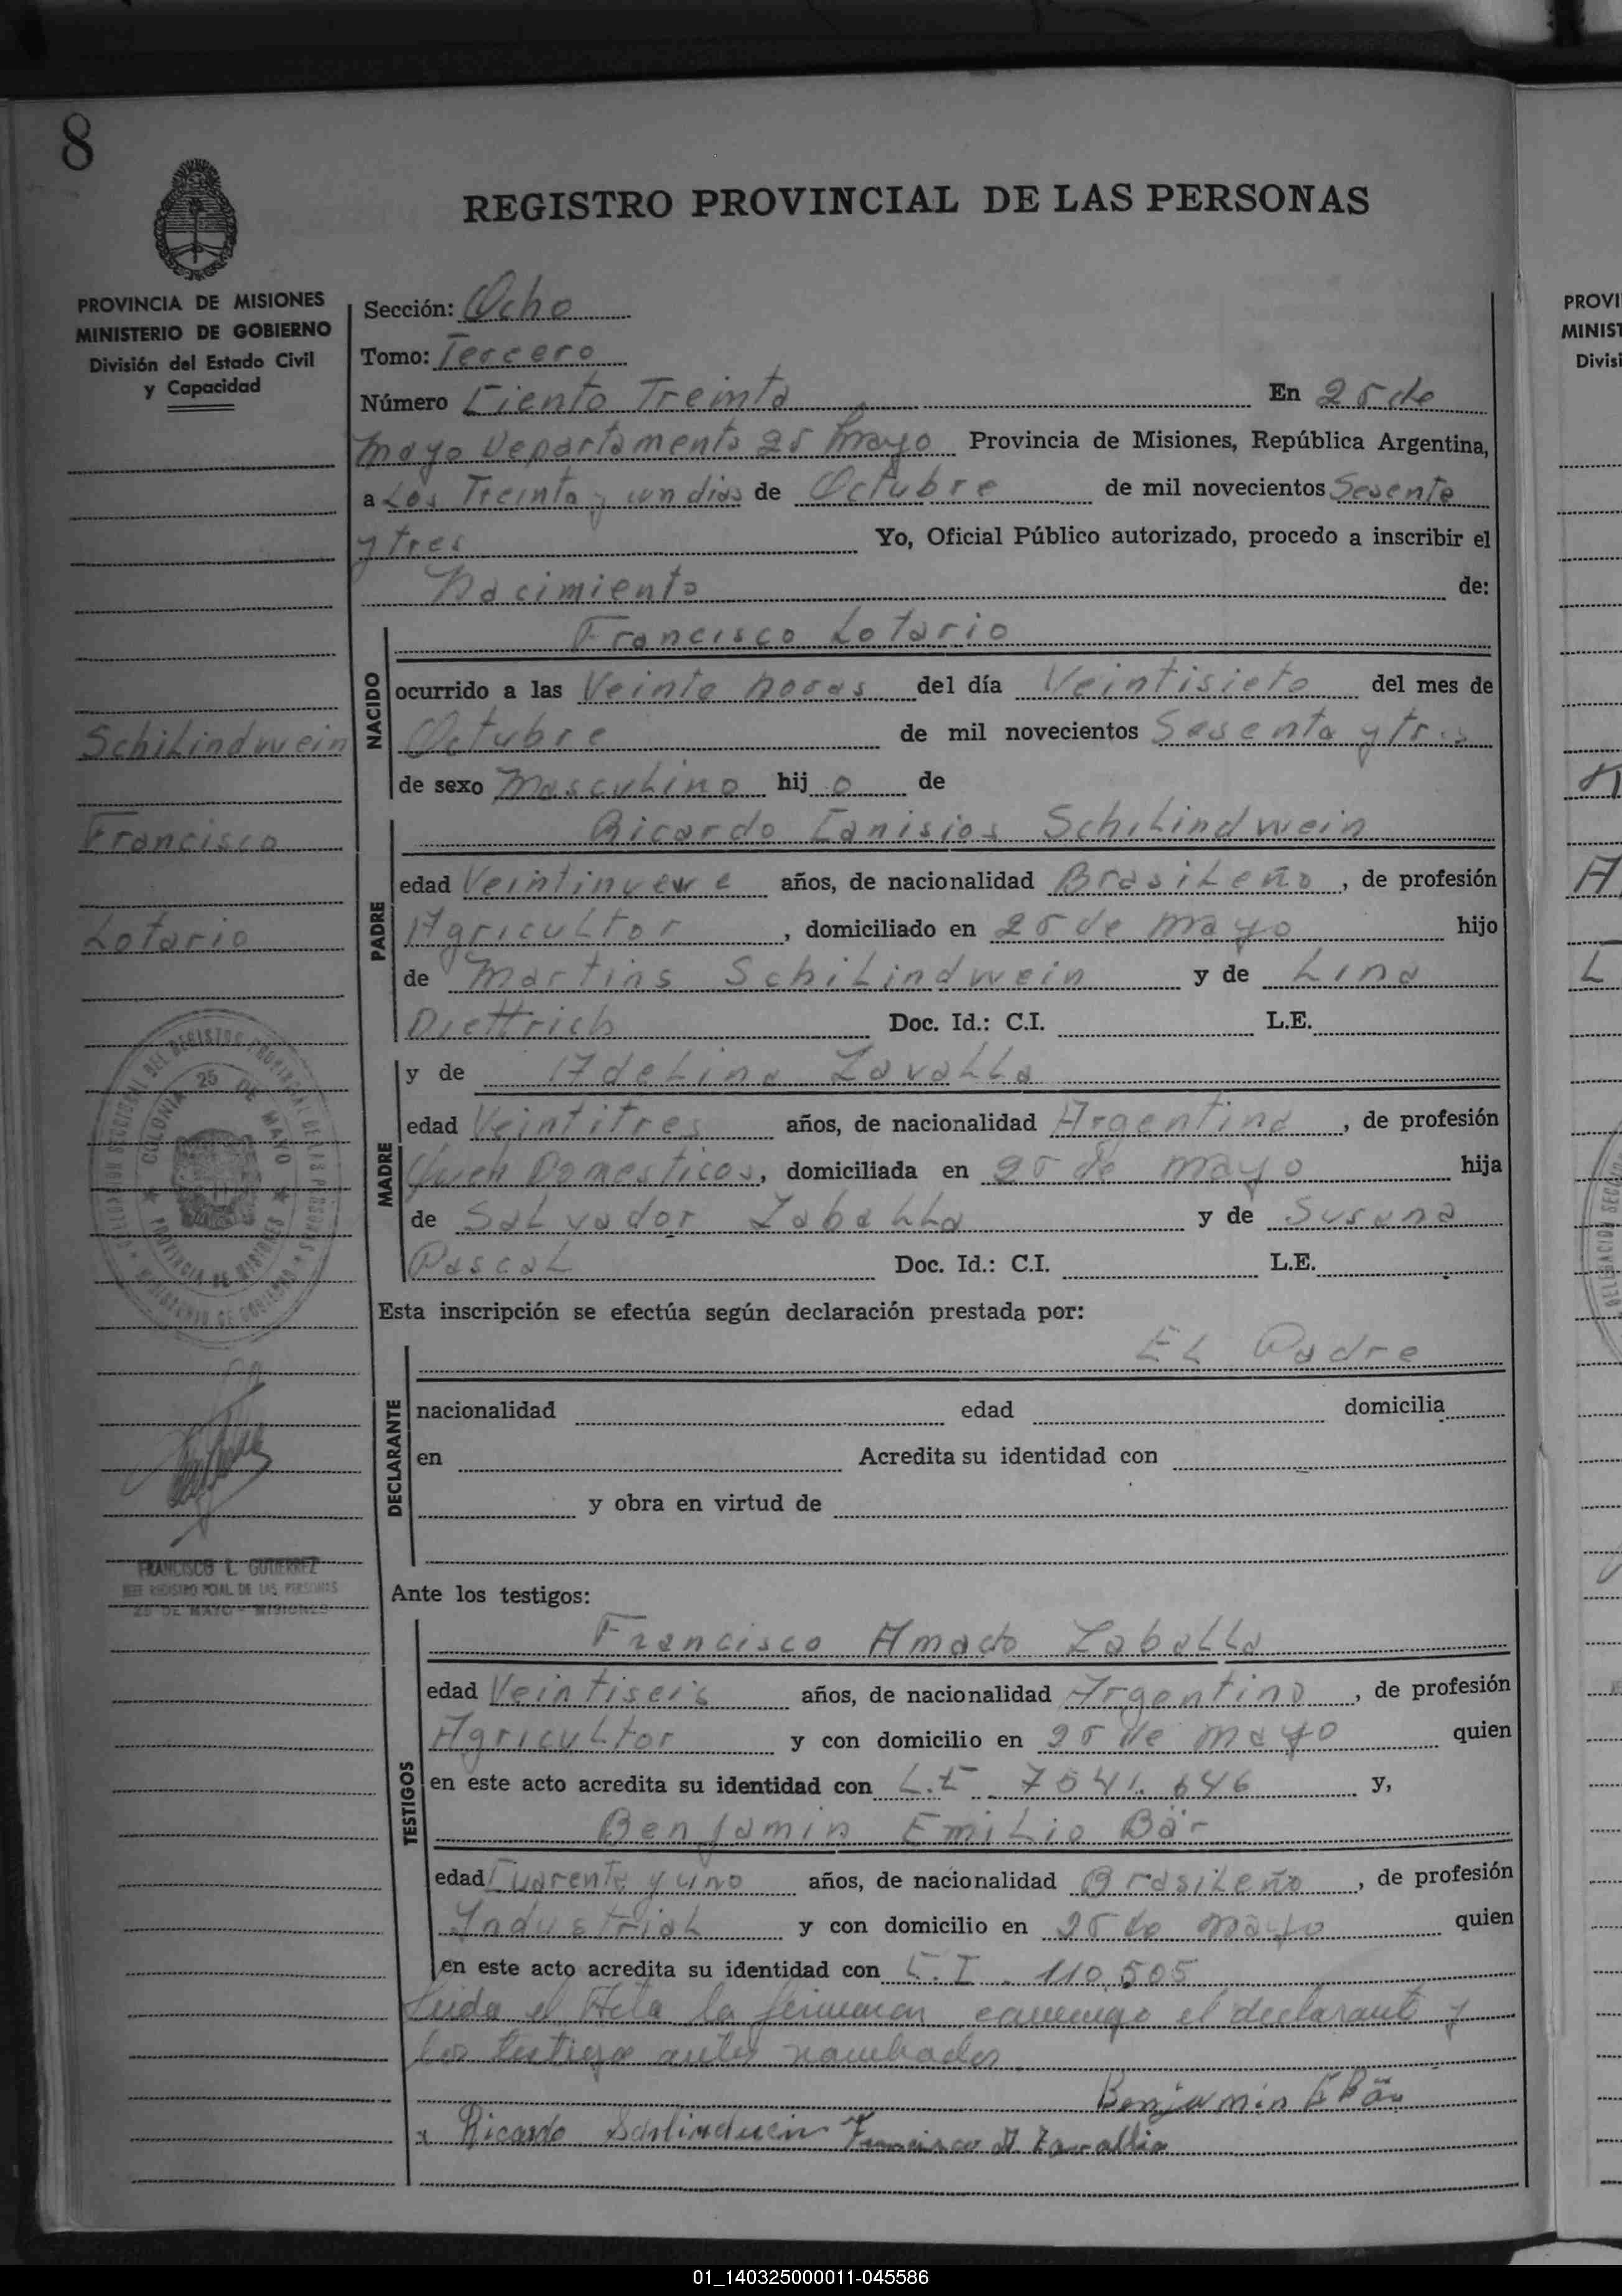 8
REGISTRO PROVINCIAL DE LAS PERSONAS
PROVINCIA DE MISIONES
MINISTERIO DE GOBIERNO
División del Estado Civil
y Capacidad
Sección: Ocho
Tomo: Tercero
Número Ciento Treinta En 25 de
Mayo Departamento 25 Mayo Provincia de Misiones, República Argentina,
a Los Treinta y un dias de Octubre de mil novecientos Sesenta
y tres Yo, Oficial Público autorizado, procedo a inscribir el
Nacimiento de:
NACIDO
Francisco Lotario
ocurrido a las Veinte horas del día Veintisiete del mes de
Octubre de mil novecientos Sesenta y tres
de sexo Masculino hij o de
Schilindwein
Francisco
Lotario
PADRE
Ricardo Canisios Schilindwein
edad Veintinueve años, de nacionalidad Brasileño, de profesión
Agricultor, domiciliado en 25 de Mayo hijo
de Martins Schilindwein y de Lina
Diettrich Doc. Id.: C.I. L.E.
MADRE
y de Adelina Zavalla
edad Veintitres años, de nacionalidad Argentina, de profesión
Queh Domesticos, domiciliada en 25 de Mayo hija
de Salvador Zaballa y de Susana
Pascal Doc. Id.: C.I. L.E.
COLONIA 25 DE MAYO
PROVINCIA DE MISIONES
Esta inscripción se efectúa según declaración prestada por:
DECLARANTE
El Padre
nacionalidad edad domicilia
en Acredita su identidad con
y obra en virtud de
FRANCISCO L. GUTIERREZ
JEFE REGISTRO PCIAL. DE LAS PERSONAS
25 DE MAYO - MISIONES
Ante los testigos:
TESTIGOS
Francisco Amado Zaballa
edad Veintiseis años, de nacionalidad Argentino, de profesión
Agricultor y con domicilio en 25 de Mayo quien
en este acto acredita su identidad con L.E 7541.646 y,
Benjamin Emilio Bär
edad Cuarenta y uno años, de nacionalidad Brasileño, de profesión
Industrial y con domicilio en 25 de Mayo quien
en este acto acredita su identidad con C.I. 110.505
Leida el Acta la firman conmigo el declarante y
los testigos antes nombrados
Benjamin E Bär
Ricardo Schlindwein Francisco A Zavallia
PROVI
MINIST
Divisi
01_140325000011-045586